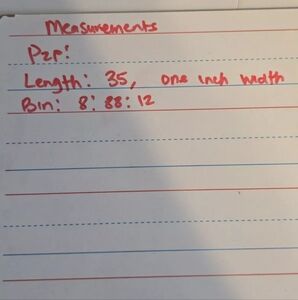 Measurements
Pzp:
Length: 35, one inch width
Bin: 8:88:12